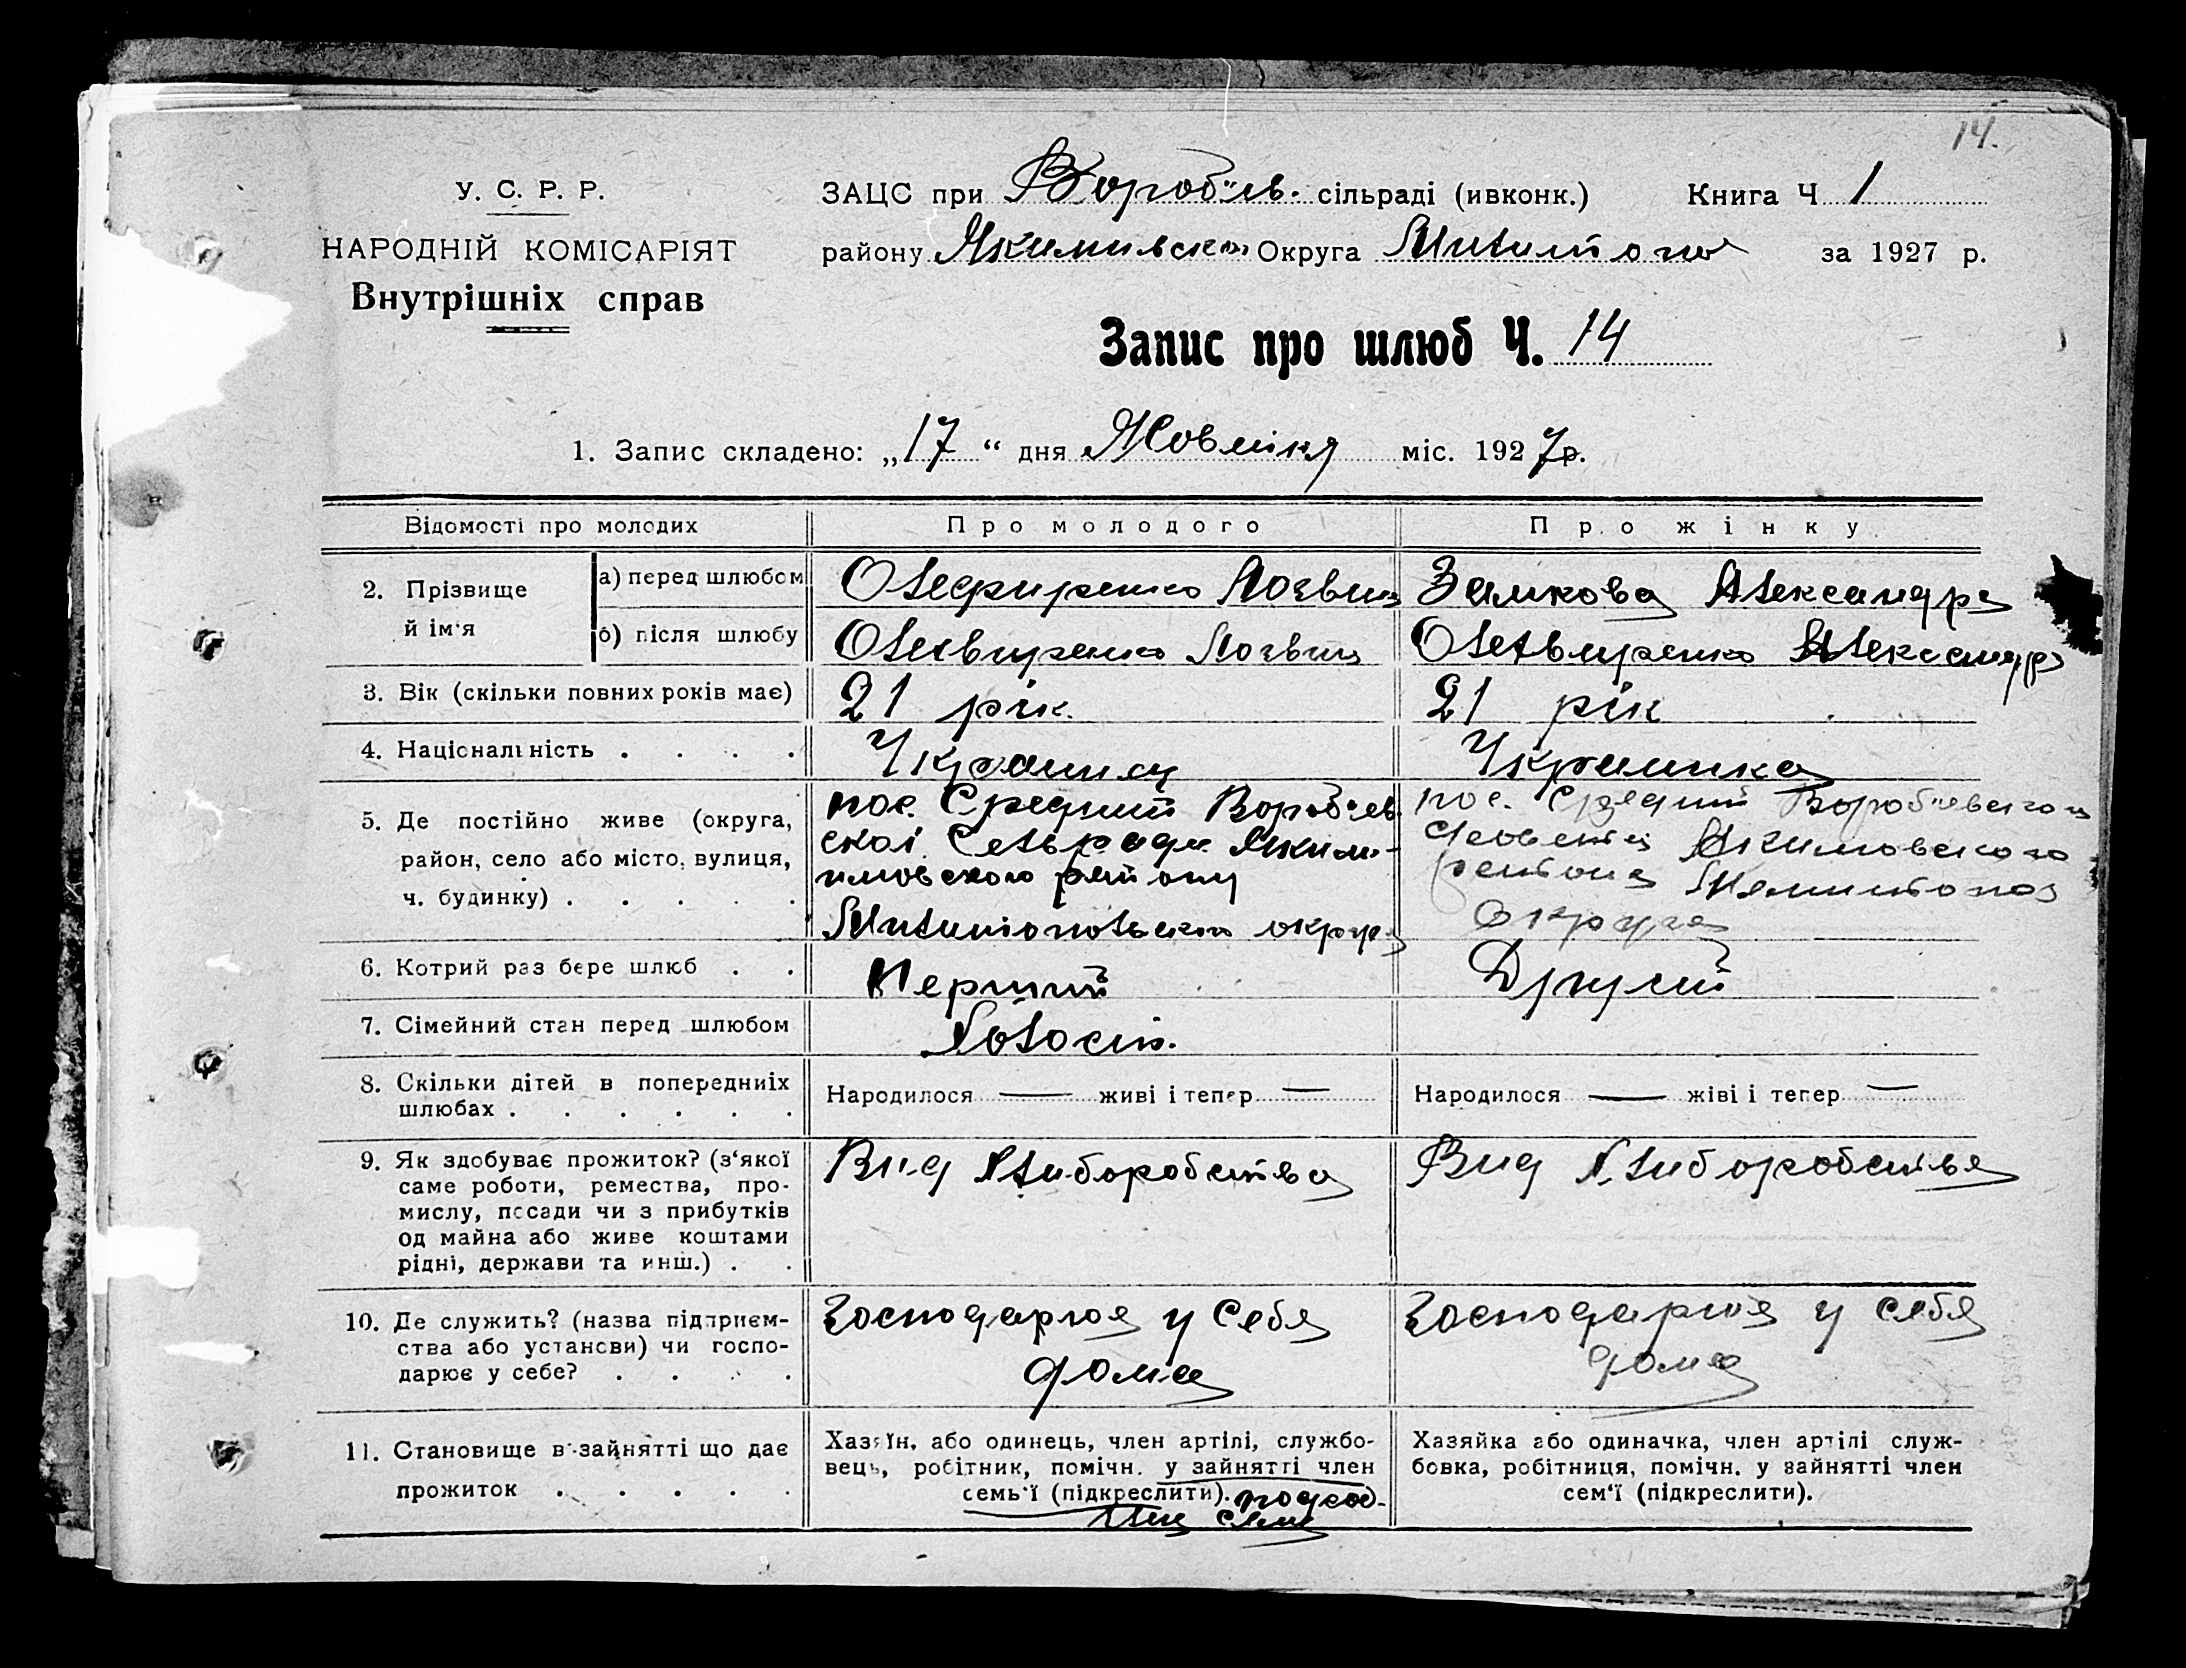 14.
У. С. Р. Р.
НАРОДНІЙ КОМІСАРІЯТ
Внутрішніх справ
ЗАЦС при Вороб'їв. сільраді (ивконк.) Книга Ч 1
району Якимивскаи Округа Мелитопо за 1927 р.
Запис про шлюб Ч. 14
1. Запис складено: „17“ дня Жовтня міс. 1927 р.
Відомості про молодих Про молодого Про жінку
2. Прізвище й ім'я
а) перед шлюбом Олефиренко Логвин Замкова Александра
б) після шлюбу Олехвиренко Логвин Олехвиренко Александра
3. Вік (скільки повних років має) 21 рік. 21 рік
4. Національність . . . . Украинец Украинка
5. Де постійно живе (округа, район, село або місто, вулиця, ч. будинку) . . . . .
пос. Средний Вороб'ев.
ской Сельради Якими-
мовского району
Мелитопольского округа
пос. Средний Вороб'евского
Якимовского
района Мелитопол
округа
6. Котрий раз бере шлюб . . Перший Другий
7. Сімейний стан перед шлюбом Холостий.
8. Скільки дітей в попередниіх шлюбах . . . . . .
Народилося — живі і тепер —
Народилося — жіві і тепер —
9. Як здобуває прожиток? (з‘якої
саме роботи, ремества, про-
мислу, посади чи з прибутків
од майна або живе коштами
рідні, держави та инш.) . .
Вид Хлиборобства
Вид Хлиборобства
10. Де служить? (назва підприєм-
ства або установи) чи госпо-
дарює у себе? . . . .
Господарюя у себя
дома
Господарюя у себя
дома
11. Становище в зайнятті що дає
прожиток . . . . .
Хазяїн, або одинець, член артілі, службо-
вець, робітник, помічн. у зайнятті член
семь'ї (підкреслити).
Хазяйка або одиначка, член артілі служ-
бовка, робітниця, помічн. у зайнятті член
сем‘ї (підкреслити).